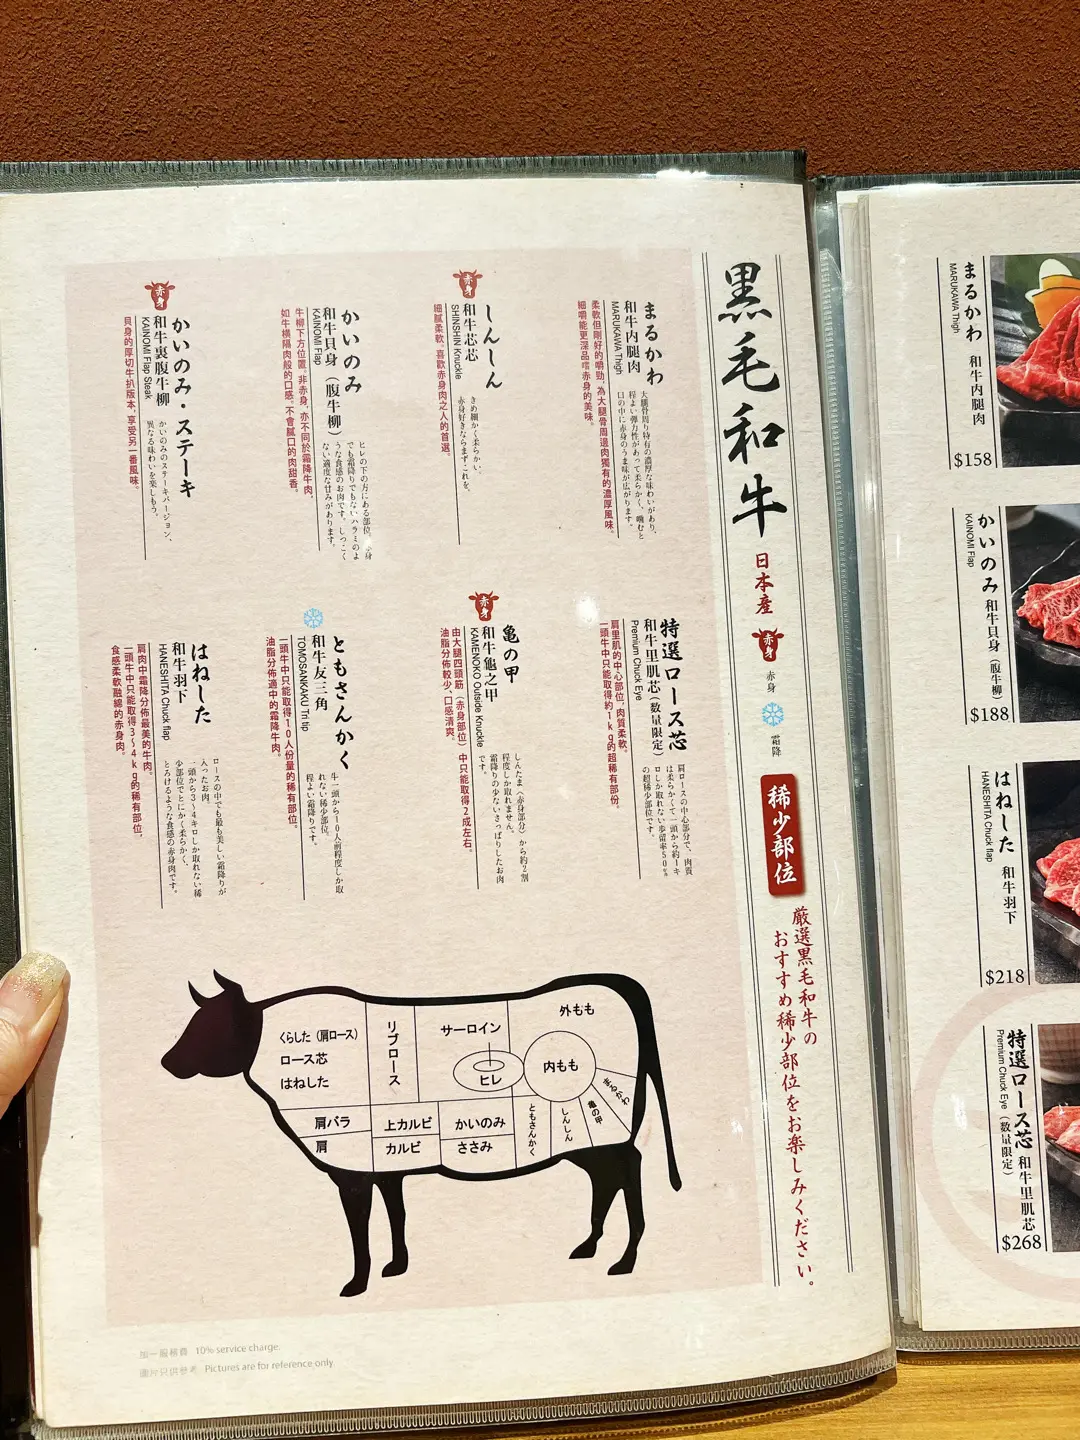 黒毛和牛
日本産
赤身
赤身
霜降
稀少部位
厳選黒毛和牛の
おすすめ稀少部位をお楽しみください。
まるかわ
和牛内腿肉
MARUKAWA Thigh
大腿骨周り特有の濃厚な味わいがあり、
程よい弾力性があって柔らかく、噛むと
口の中に赤身のうま味が広がります。
柔軟但剛好的嚼勁，為大腿骨周邊肉獨有的濃厚風味。
細嚼能更深品嚐赤身的美味。
赤身
しんしん
和牛芯芯
SHINSHIN Knuckle
きめ細かく柔らかい。
赤身好きならまずこれを。
細膩柔軟。喜歡赤身肉之人的首選。
かいのみ
和牛貝身（腹牛柳）
KAINOMI Flap
ヒレの下の方にある部位。赤身
でも霜降りでもないハラミのよ
うな食感のお肉です。しつこく
ない適度な甘みがあります。
牛柳下方位置。非赤身，亦不同於霜降牛肉，
如牛橫隔肉般的口感。不會膩口的肉甜香。
赤身
かいのみ・ステーキ
和牛裏腹牛柳
KAINOMI Flap Steak
かいのみのステーキバージョン、
異なる味わいを楽しもう。
貝身的厚切牛扒版本，享受另一番風味。
特選ロース芯
和牛里肌芯（数量限定）
Premium Chuck Eye
肩ロースの中心部分で、肉質
は柔らかくて一頭から約1キ
ロしか取れない歩留率5.0%
の超稀少部位です。
肩里肌的中心部位，肉質柔軟。
一頭牛中只能取得約1kg的超稀有部份。
赤身
亀の甲
和牛龜之甲
KAMENOKO Outside Knuckle
しんたま（赤身部分）から約2割
程度しか取れません。
霜降りの少ないさっぱりしたお肉
です。
由大腿四頭筋（赤身部位）中只能取得2成左右。
油脂分佈較少、口感清爽。
ともさんかく
和牛友三角
TOMOSANKAKU Tri tip
牛一頭から10人前程度しか取
れない稀少部位。
程よい霜降りです。
一頭牛中只能取得10人份量的稀有部位。
油脂分佈適中的霜降牛肉。
はねした
和牛羽下
HANESHITA Chuck flap
ロースの中でも最も美しい霜降りが
入ったお肉。
一頭から3～4キロしか取れない稀
少部位でとにかく柔らかく、
とろけるような食感の赤身肉です。
肩肉中霜降分佈最美的牛肉。
一頭牛中只能取得3～4kg的稀有部位，
食感柔軟融綿的赤身肉。
くらした（肩ロース）
ロース芯
はねした
リブロース
サーロイン
ヒレ
外もも
内もも
肩バラ
肩
上カルビ
カルビ
かいのみ
ささみ
ともさんかく
しんしん
亀の甲
まるかわ
加一服務費 10% service charge.
圖片只供參考 Pictures are for reference only.
まるかわ 和牛内腿肉
MARUKAWA Thigh
$158
かいのみ 和牛貝身（腹牛柳）
KAINOMI Flap
$188
はねした 和牛羽下
HANESHITA Chuck flap
$218
特選ロース芯 和牛里肌芯
Premium Chuck Eye（数量限定）
$268